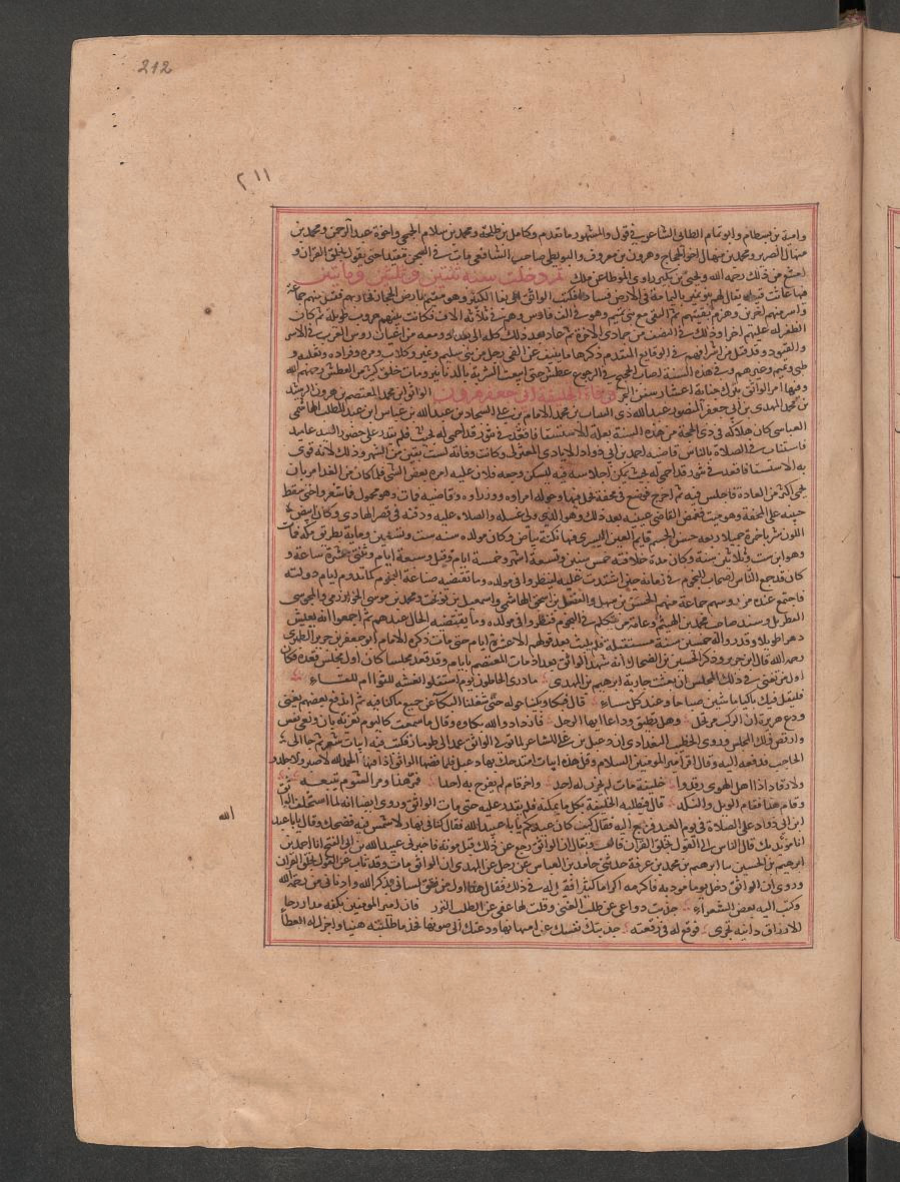 212
٢١١
وامية بن بسطام وابو تمام الطائى الشاعر فى قول والمشهور ما تقدم وكامل بن طلحة ومحمد بن سلام الجمحى واخوه عبد الرحمن ومحمد بن
منهال الضرير ومحمد بن منهال اخى الحجاج وهرون بن معروف والبويطى صاحب الشافعى مات فى السجن مقيدا حتى يقول بخلق القران و
امتنع من ذلك رحمه الله ويحيى بن بكير راوى الموطا عن ملك ثم دخلت سنة ثنتين وثلثين ومايتين
فيها عاثت قبيلة يقال لهم بنو نمير باليمامة فى الارض فسادا فكتب الواثق الى بغا الكبير وهو مقيم بارض الحجاز فحاربهم فقتل منهم جماعة
واسر منهم اخرين وهزم بقيتهم ثم التقى مع بنى تميم وهو فى الف فارس وهم فى ثلاثة الاف فكانت بينهم حروب طويلة ثم كان
الظفر له عليهم اخرا وذلك فى النصف من جمادى الاخرة ثم عاد بعد ذلك كله الى بغداد ومعه من اعيان روس العرب فى الاسر
والقيود وقد قتل من اشرافهم فى الوقايع المتقدم ذكرها ما ينيف عن الفى رجل من بنى سليم ونمير وكلاب ومرة وفزاره وثعلبه و
طى وتميم وغيرهم وفى هذه السنة اصاب الحجيج فى الرجوع عطش حتى ابيعت الشربة بالدنانير ومات خلق كثير من العطش رحمهم الله
وفيها امر الواثق بترك جباية اعشار سفن البحر وفاة الخليفة ابى جعفر هرون الواثق ابن محمد المعتصم بن هرون الرشيد
بن محمد المهدى بن ابى جعفر المنصور عبد الله ذى النصاب بن محمد الامام بن على السجاد بن عبد الله بن عباس ابن عبد المطلب الهاشمى
العباسى كان هلاكه فى ذى الحجة من هذه السنة بعلة الاستسقا فاقعد فى تنور قد احمى له بحيث فلم يقدر على حضور العيد عامئذ
فاستناب فى الصلاة بالناس قاضيه احمد بن ابى دواد الايادى المعتزلى وكانت وفاته لست بقين من الشهر وذلك لانه قوى
به الاستسقا فاقعد فى تنور قد احمى له بحيث يمكن اجلاسه فيه ليسكن وجعه فلان عليه امره بعض الشى فلما كان من الغد امر بان
يحمى اكثر من العادة فاجلس فيه ثم اخرج فوضع فى محفة فحمل فيها وحوله امراوه ووزراوه وقاضيه فمات وهو محمول فما شعر واحتى سقط
جبينه على المحفة وهو ميت فغمض القاضى عينيه بعد ذلك وهو الذى ولى غسله والصلاه عليه ودفنه فى قصر الهادى وكان ابيض
اللون مشربا حمرة جميلا ربعه حسن الجسم قايم العين اليسرى فيها نكتة بياض وكان مولده سنه ست وتسعين وماية بطريق مكة فمات
وهو ابن ست وثلاثين سنة وكان مدة خلافته خمس سنين وتسعة اشهر وخمسة ايام وقيل وسبعة ايام وثنتى عشرة ساعة و
كان قد جمع الناس اصحاب النجوم فى زمانه حين اشتدت علته لينظروا فى مولده وما تقتضيه صناعة النجوم كم تدوم ايام دولته
فاجتمع عنده من روسهم جماعة منهم الحسن بن سهل والفضل بن اسحق الهاشمى واسمعيل بن نوبخت ومحمد بن موسى الخوارزمى والمجوسى
القطربلى وسند صاحب محمد بن الهيثم وعامة من يتكلم فى النجوم فنظروا فى مولده وما يقتضيه الحال عندهم ثم اجمعوا انه يعيش
دهرا طويلا وقدروا له خمسين سنة مستقبلة فلم يلبث بعد قولهم الا عشرة ايام حتى مات ذكره الامام ابو جعفر بن جرير الطبرى
رحمه الله قال ابن جرير وذكر الحسين بن الضحاك انه شهد الواثق بعد ان مات المعتصم بايام وقد قعد مجلسا كان اول مجلس قعده فكان
اول من تغنى فى ذلك المجلس ان غنت جارية ابرهيم بن المهدى ما درى الحاملون يوم استقلوا نعشه للثوا ام للقساء
فليقل فيك باكياتك ما شين صباحا وعند كل مساء قال فبكا وبكينا حوله حتى شغلنا البكا عن جميع ما كنا فيه ثم اندفع بعضهم يغنى
ودع هريرة ان الركب مرتحل وهل تطيق وداعا ايها الرجل فازداد والله بكاوه وقال ما سمعت كاليوم تعزية باب ونعى نفس
وارفض ذلك المجلس وروى الخطيب البغدادى ان دعبل بن على الشاعر لما تولى الواثق عمد الى طومار فكتب فيه ابيات شعر ثم جا الى
الحاجب فدفعه اليه وقال اقرا امير المومنين السلام وقل هذه ابيات امتدحك بها دعبل فلما فضها الواثق اذا فيها الحمد لله لا صبر ولا جلد
ولا رقاد اذا اهل الهوى رقدوا خليفة مات لم يحزن له احد واخر قام لم يفرح به احد فمر هذا ومر الشوم يتبعه
وقام هذا فقام الويل والنكد قال فتطلبه الخليفة بكل ما يمكنه فلم يقدر عليه حتى مات الواثق وروى ايضا انه لما استخلف الواثق
ابن ابى دواد على الصلاة فى يوم العيد ورجع اليه فقال كيف كان عيدكم يابا عبد الله فقال كنا فى نهار لا شمس فيه فضحك وقال يابا عبد
الله
انا مويد بك قال الناس الى القول بخلق القران قال ويقال ان الواثق رجع عن ذلك قبل موته فاخبرنى عبيد الله بن ابى الفتح انا احمد بن
ابرهيم بن الحسين سا ابرهيم بن محمد بن عرفة حدثنى حامد بن العباس عن رجل عن المهدى ان الواثق مات وقد تاب عن القول بخلق القران
وروى ان الواثق دخل يوما مودبه فاكرمه اكراما كثيرا فقيل له فى ذلك فقال هذا اول من فتق لسانى بذكر الله وادنانى من رحمة الله
وكتب اليه بعض الشعراء جذبت دواعى عن طلب الغنى وقلت لها عفى عن الطلب النزر فان امير المومنين بكفه مدار رحا
الارزاق دايبه تجرى فوقع له فى رقعته جذبتك نفسك عن امتهانها ودعتك الى صونها فخذ ما طلبته هنيا واجزل له العطا